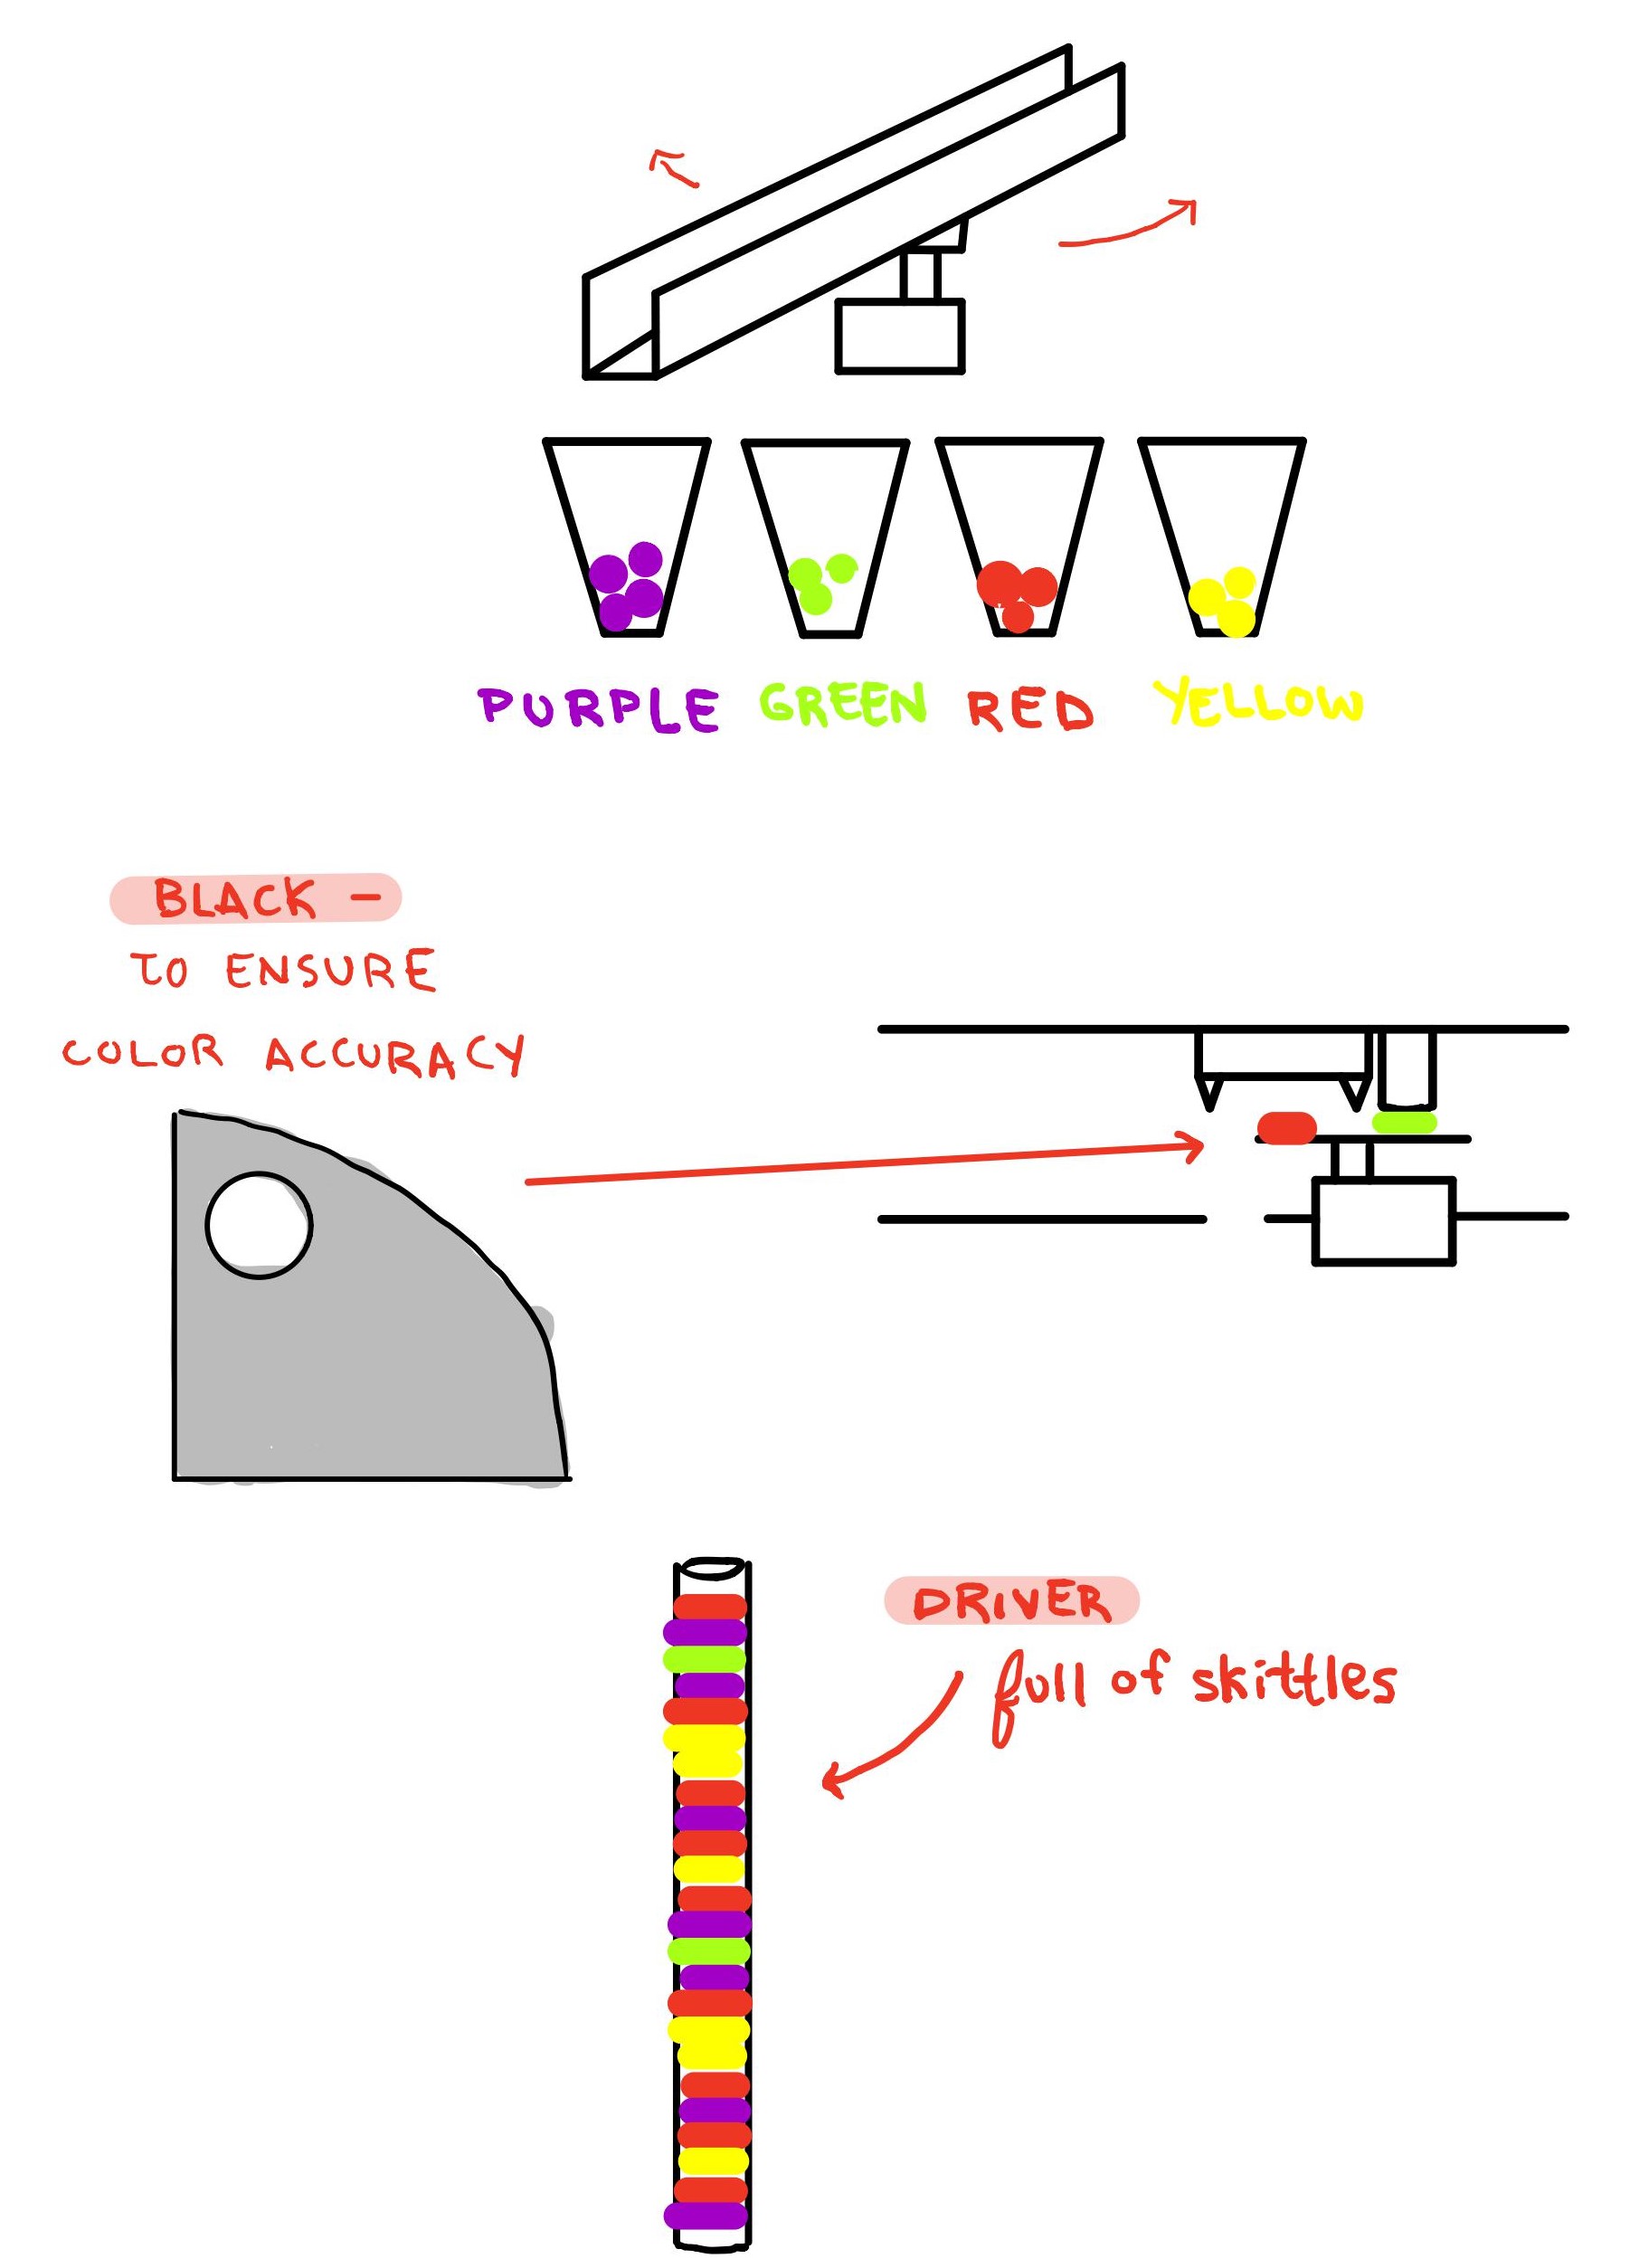 PURPLE GREEN RED YELLOW
BLACK -
TO ENSURE
COLOR ACCURACY
DRIVER
full of skittles